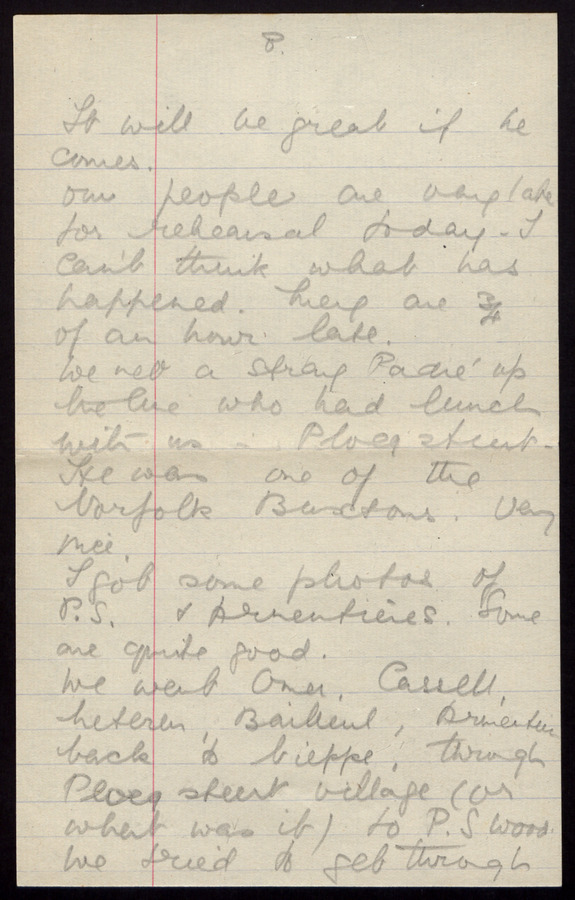 8.
It will be great if he
comes.
Our people are very late
for rehearsal today - I
can't think what has
happened. They are 3/4
of an hour late.
We met a stray Padre' up
the line who had lunch
with us - Ploegsteert.
He was one of the
Norfolk Buxtons. Very
nice.
I got some photos of
P.S. & Armentières. Some
are quite good.
We went Omer, Cassell,
Meteren, Bailleul, Armentier
back to Nieppe, through
Ploegsteert village (or
what was it) to P.S wood.
We tried to get through